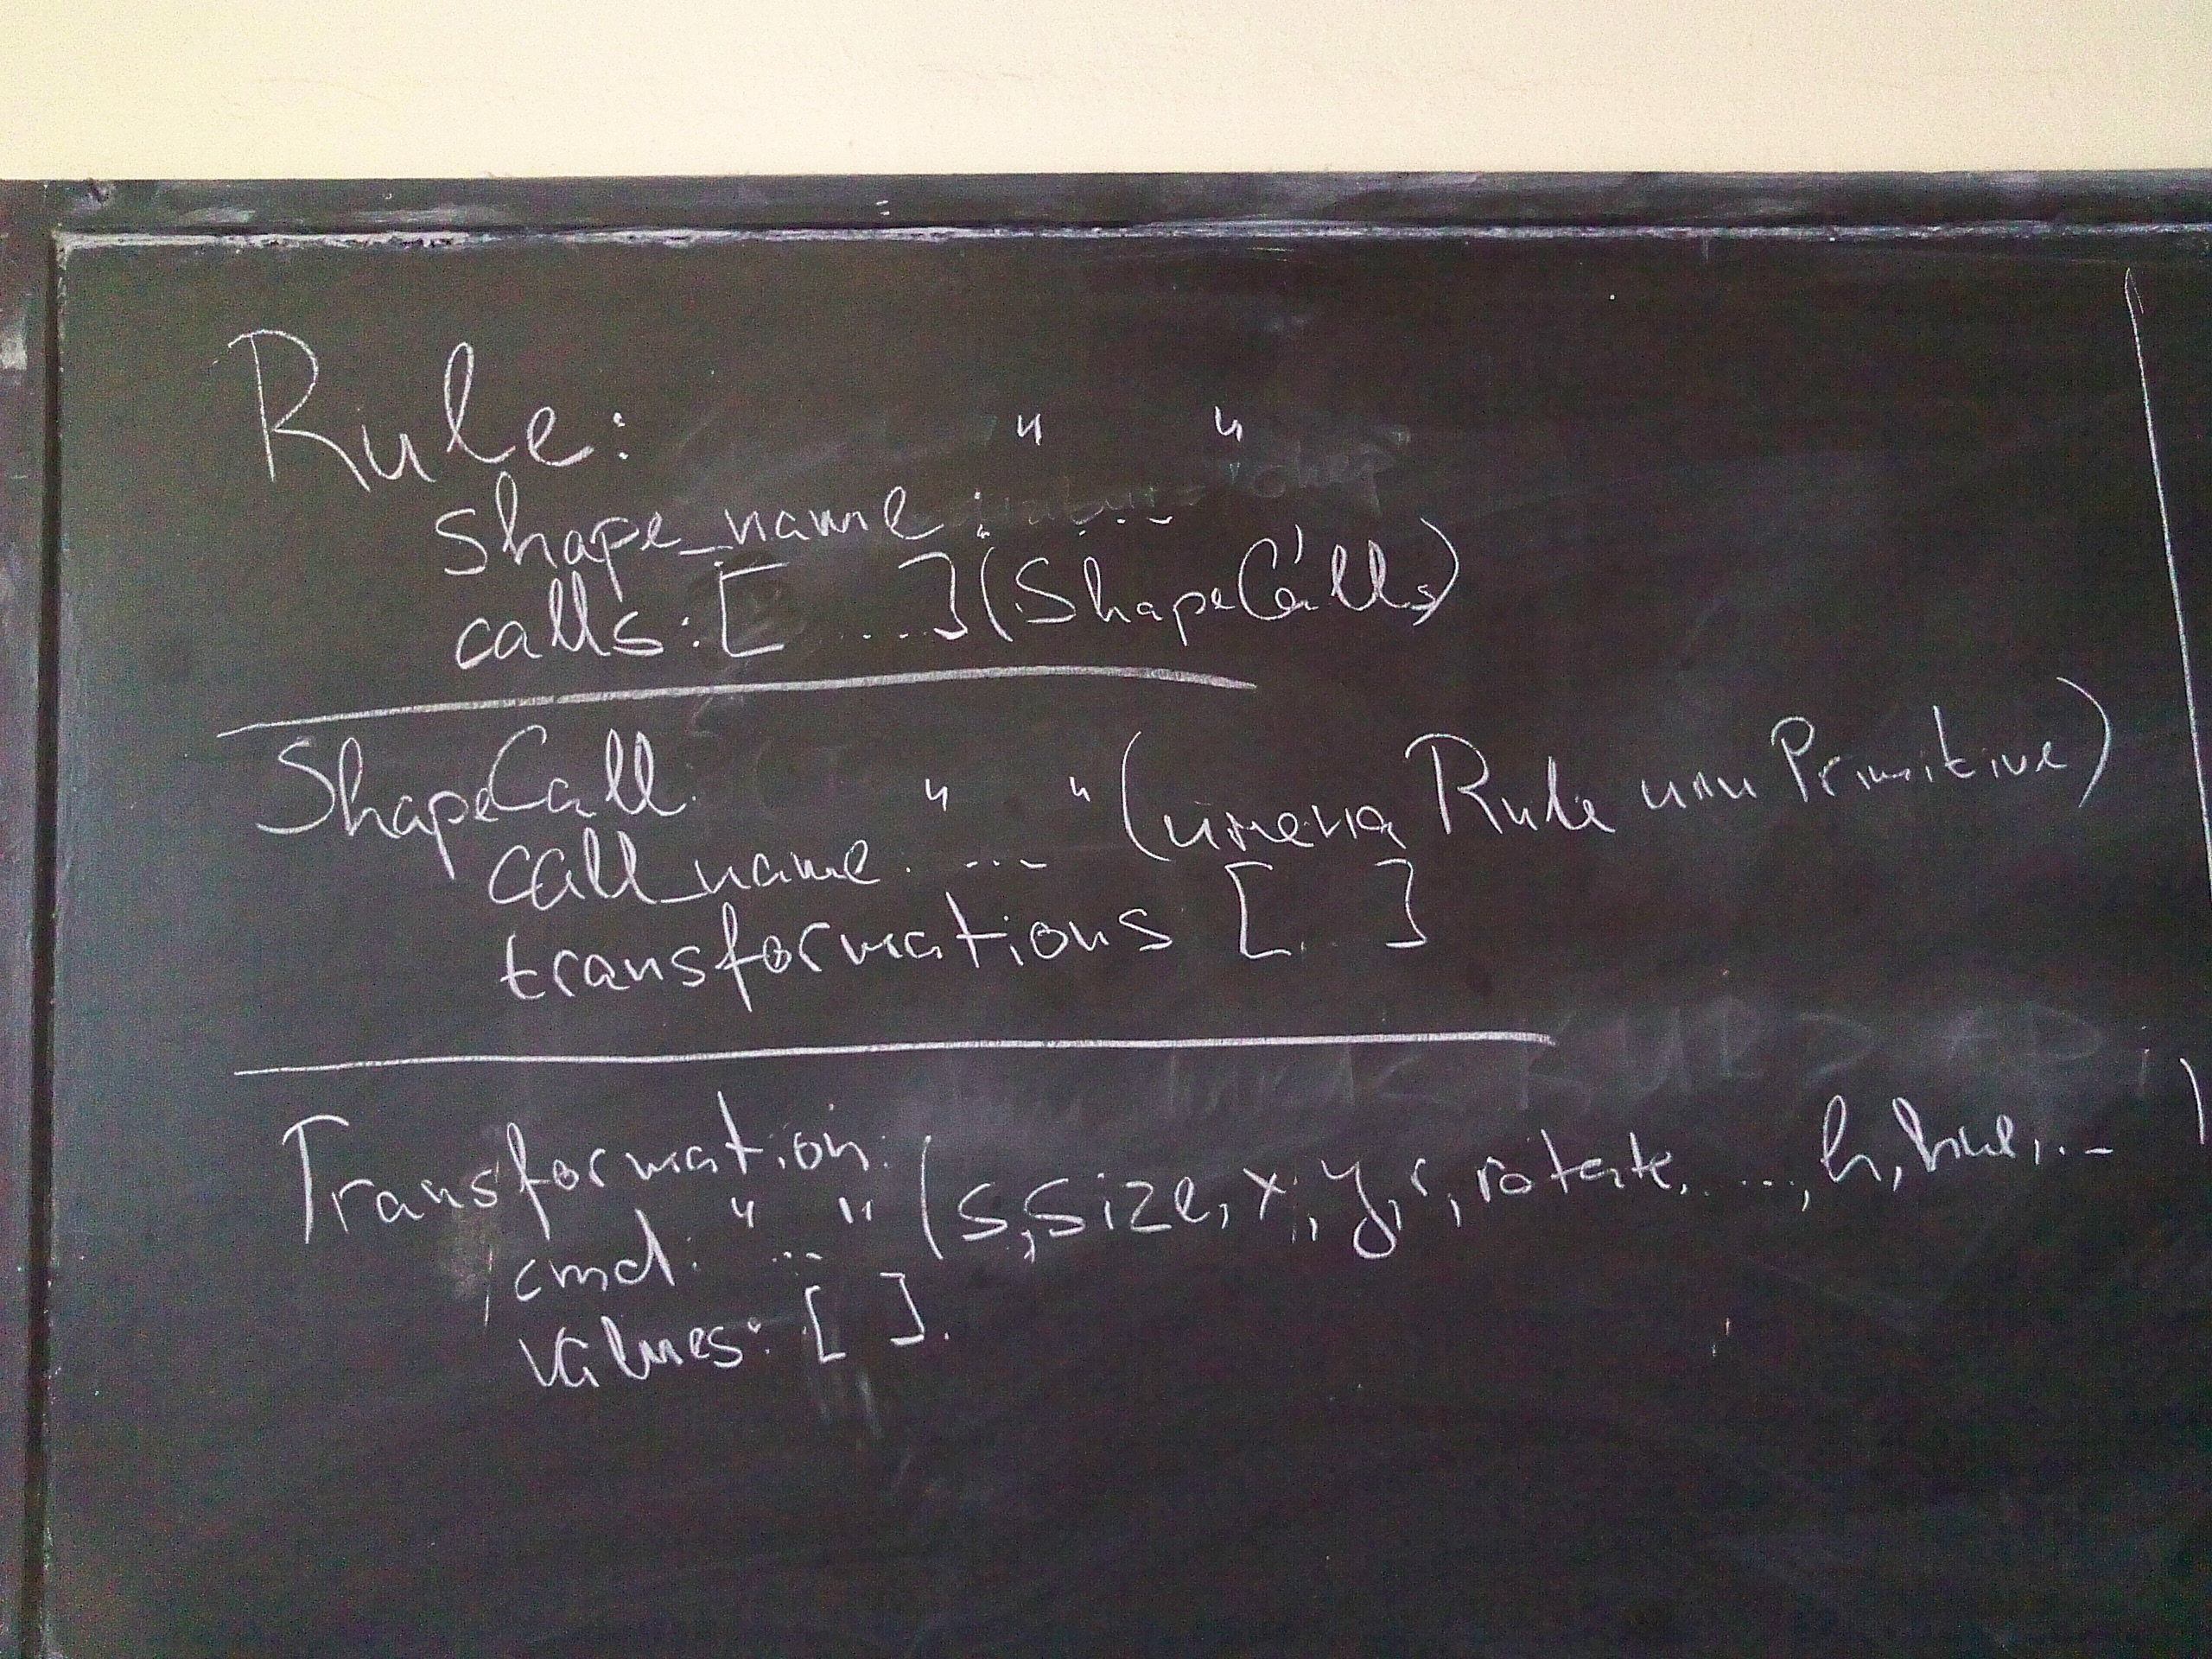 Rule:
shape_name : "..."
calls: [ ....] (ShapeCalls)
ShapeCall
call_name. "..." (имена Rule или Primitive)
transformations [...]
Transformation:
cmd: "..." (s, size, x, y, r, rotate, ..., h, hue, ...)
values: [ ].